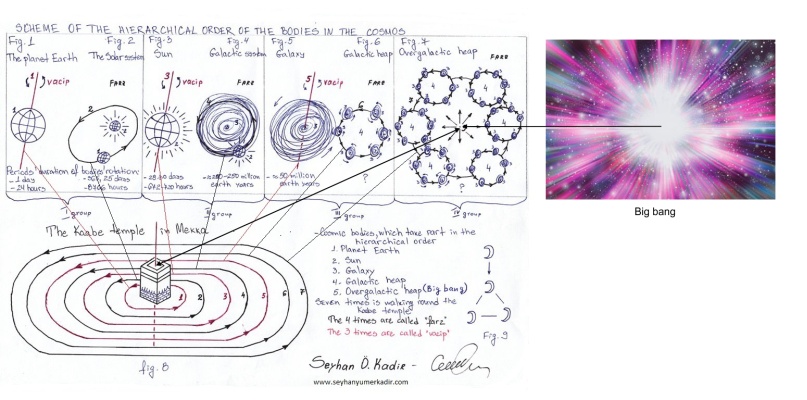 SCHEME OF THE HIERARCHICAL ORDER OF THE BODIES IN THE COSMOS
Fig.1 Fig.2 Fig.3 Fig.4 Fig.5 Fig.6 Fig.7
The planet Earth The Solar system Sun Galactic system Galaxy Galactic heap Overgalactic heap
1 vacip FARZ 3 vacip FARZ 5 vacip FARZ FARZ
1 2 3 4 5 6 7
4 4 4 4 4 4
Periods duration of bodies rotation:
~1 day
~24 hours
~365,25 days
~8766 hours
~ 50 million
earth years
earth years
? ?
I group II group III group IV group
The Kaabe temple in Mekka
1 2 3 4 5 6 7
fig.8
-Cosmic bodies, which take part in the
hierarchical order
1. Planet Earth
2. Sun
3. Galaxy
4. Galactic heap
5. Overgalactic heap (Big bang)
Seven times is walking round the
Kaabe temple
The 4 times are called "farz"
The 3 times are called "vacip"
Fig.9
Seyhan Ö. Kadir -
www.seyhanyumerkadir.com
Big bang